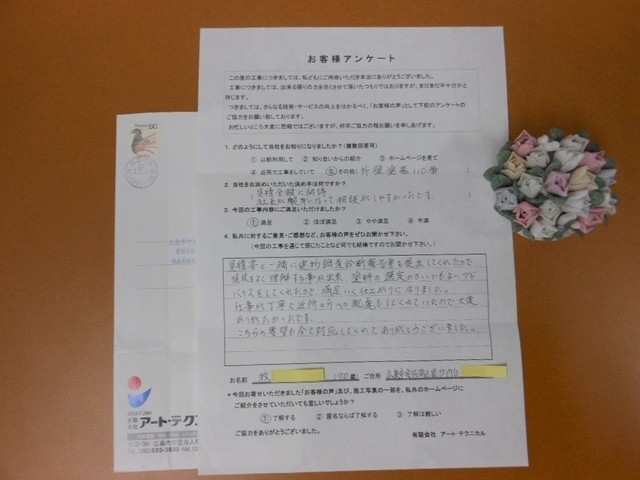 お客様アンケート
この度の工事につきましては、私どもにご用命いただき本当にありがとうございました。
工事につきましては、出来る限りの力を尽くさせて頂いたつもりではありますが、まだまだ不十分かと
存じます。
つきましては、さらなる技術・サービスの向上をはかるべく、「お客様の声」として下記のアンケートの
ご協力をお願い致しております。
お忙しいところ大変に恐縮ではございますが、何卒ご協力の程お願いを申しあげます。
1. どのようにして当社をお知りになりましたか?(複数回答可)
① 以前利用して ② 知り合いからの紹介 ③ ホームページを見て
④ 近所で工事をしていて ⑤その他( 外壁塗装110番 )
2. 当社をお決めいただいた決め手は何ですか?
見積金額に納得
社長が親身になって相談がしやすかったです。
3. 今回の工事内容にご満足いただけましたか?
① 満足 ② ほぼ満足 ③ やや満足 ④ 不満
4. 私共に対するご意見・ご感想など、お客様の声をぜひお聞かせ下さい。
(今回の工事を通じて感じたことなど何でも結構ですのでお聞かせ下さい。)
見積書と一緒に建物調査診断報告書を提出してくれたので
現状をよく理解する事が出来、塗料の選定のさいにもよいアド
バイスをしてくれたので満足いく仕上がりになりました。
仕事が丁寧で近所の方への配慮もしてくれていたので大変
ありがたかったです。
こちらの要望も全て対応してくれてありがとうございました。
お名前 牧 (70歳) ご住所 広島市安佐南区
* 今回お寄せいただきました「お客様の声」及び、施工写真の一部を、私共のホームページに
ご紹介をさせていただいても宜しいでしょうか?
① 了解する ② 匿名ならば了解する ③ 了解は難しい
ご協力をありがとうございました。
有限会社 アート・テクニカル
60
アート・テク